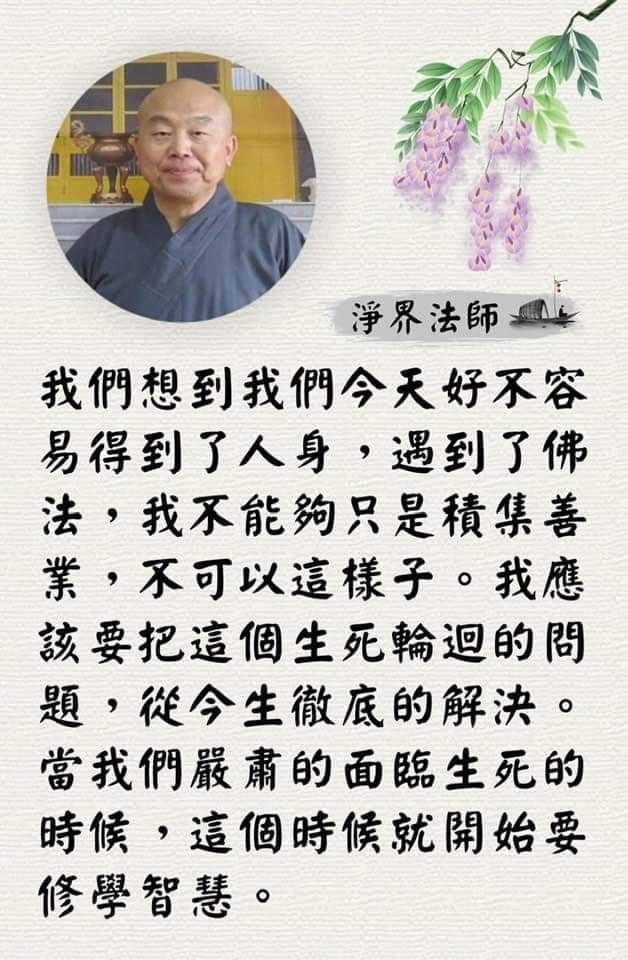 淨界法師
我們想到我們今天好不容
易得到了人身，遇到了佛
法，我不能夠只是積集善
業，不可以這樣子。我應
該要把這個生死輪迴的問
題，從今生徹底的解決。
當我們嚴肅的面臨生死的
時候，這個時候就開始要
修學智慧。